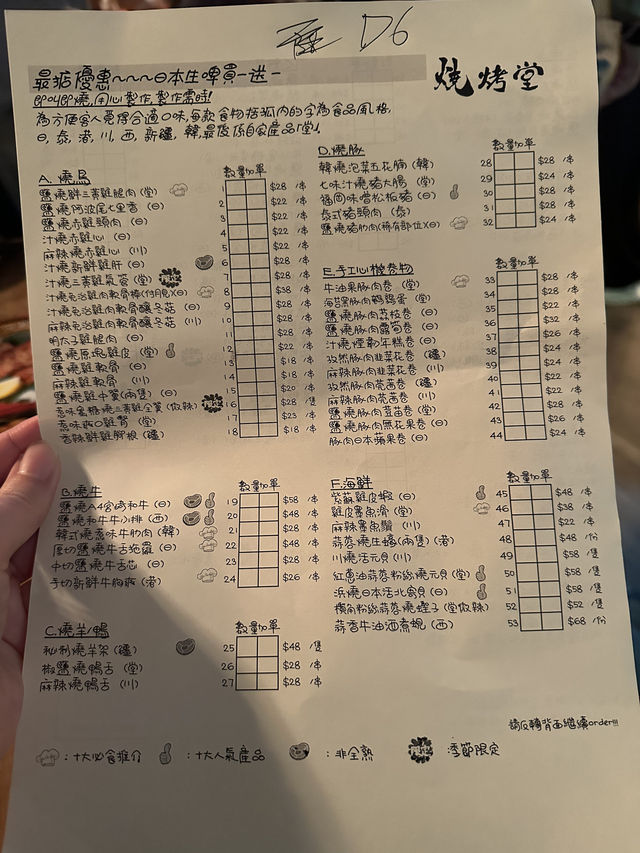 D6
最抵優惠~~~日本生啤買一送一
燒烤堂
即叫即燒,用心製作,製作需時!
為方便客人選擇合適口味,每款食物括弧內的字為食品風格,
日,泰,港,川,西,新疆,韓,最後係自家產品「堂」。
A. 燒鳥 數量加單
鹽燒鮮三黃雞腿肉 (堂) 1 $28 /串
鹽燒阿波尾七里香 (日) 2 $22 /串
鹽燒赤雞頸肉 (日) 3 $22 /串
汁燒赤雞心 (日) 4 $22 /串
麻辣燒赤雞心 (川) 5 $22 /串
汁燒新鮮雞肝 (日) 6 $28 /串
汁燒三黃雞 (堂) 7 $38 /串
汁燒免治雞肉軟骨棒(付月見)(日) 8 $28 /串
汁燒免治雞肉軟骨釀冬菇 (日) 9 $28 /串
麻辣免治雞肉軟骨釀冬菇 (川) 10 $28 /串
明太子雞腿肉 (日) 11 $28 /串
鹽燒原塊雞皮 (堂) 12 $22 /串
鹽燒雞軟骨 (日) 13 $18 /串
麻辣雞軟骨 (川) 14 $18 /串
鹽燒雞中翼(兩隻) (日) 15 $20 /串
惹味蜜糖燒三黃雞全翼 (微辣) 16 $28 /隻
惹味豉心雞腎 (堂) 17 $23 /串
香辣鮮雞腳根 (疆) 18 $18 /串
B. 燒牛 數量加單
鹽燒A4宮崎和牛 (日) 19 $58 /串
鹽燒和牛牛小排 (西) 20 $58 /串
韓式燒惹味牛肋肉 (韓) 21 $28 /串
厚切鹽燒牛舌皰羅 (日) 22 $48 /串
中切鹽燒牛舌芯 (日) 23 $28 /串
手切新鮮牛胸爽 (港) 24 $26 /串
C. 燒羊/鴨 數量加單
秘制燒羊架 (疆) 25 $48 /隻
椒鹽燒鴨舌 (堂) 26 $28 /串
麻辣燒鴨舌 (川) 27 $28 /串
D. 燒豚 數量加單
韓燒泡菜五花腩 (韓) 28 $28 /串
七味汁燒豬大腸 (堂) 29 $24 /串
福岡味噌松板豬 (日) 30 $28 /串
泰式豬頸肉 (泰) 31 $28 /串
鹽燒豬肋肉(稀有部位)(日) 32 $24 /串
E. 手工心機卷物 數量加單
牛油果豚肉卷 (堂) 33 $28 /串
海苔黑豚肉鵪鶉蛋 (堂) 34 $28 /串
鹽燒豚肉荔枝卷 (日) 35 $28 /串
鹽燒豚肉露筍卷 (日) 36 $32 /串
汁燒煙鴨年糕卷 (日) 37 $26 /串
孜然豚肉韮菜花卷 (疆) 38 $24 /串
麻辣豚肉韮菜花卷 (川) 39 $24 /串
孜然豚肉茶菌卷 (疆) 40 $22 /串
麻辣豚肉茶菌卷 (川) 41 $22 /串
鹽燒豚肉荳苗卷 (堂) 42 $28 /串
鹽燒豚肉無花果卷 (日) 43 $26 /串
豚肉日本蘋果卷 (日) 44 $24 /串
F. 海鮮 數量加單
紫蘇雞皮蝦 (日) 45 $48 /串
雞皮墨魚滑 (堂) 46 $38 /串
麻辣墨魚鬚 (川) 47 $22 /串
蒜蓉燒生蠔(兩隻) (港) 48 $48 /份
川燒活元貝 (川) 49 $58 /隻
紅蔥油蒜蓉粉絲燒元貝 (堂) 50 $58 /隻
浜燒日本活北寄貝 (日) 51 $58 /隻
欖角粉絲蒜蓉燒蟶子 (堂微辣) 52 $52 /隻
蒜香牛油酒煮蜆 (西) 53 $68 /份
請反轉背面繼續order!!!
:十大必食推介 :十大人氣產品 :非全熟 季節限定 :季節限定